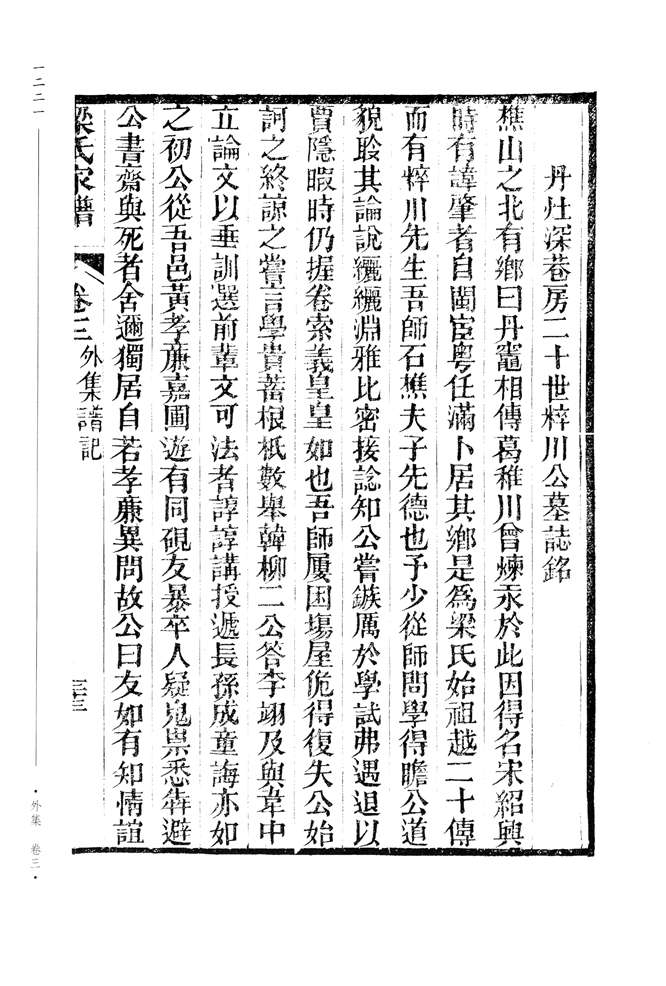 丹灶深巷房二十世梓川公墓誌銘
樵山之北有鄉曰丹竈相傳葛稚川曾煉汞於此因得名宋紹興
時有諱肇者自閩宦粵任滿卜居其鄉是為梁氏始祖越二十傳
而有梓川先生吾師石樵夫子先德也予少從師問學得瞻公道
貌聆其論說纚纚淵雅比密接諗知公嘗鏃厲於學試弗遇退以
賈隱暇時仍握卷索義皇皇如也吾師屢困場屋佹得復失公始
訶之終諒之嘗言學貴蓄根柢數舉韓柳二公答李翊及與韋中
立論文以垂訓選前輩文可法者諄諄講授遞長孫成童誨亦如
之初公從吾邑黃孝亷嘉圃遊有同硯友暴卒人疑鬼祟悉犇避
公書齋與死者舍邇獨居自若孝亷異問故公曰友如有知情誼
梁氏家譜
卷三 外集譜記
三三
一二二一
·外集 卷三·